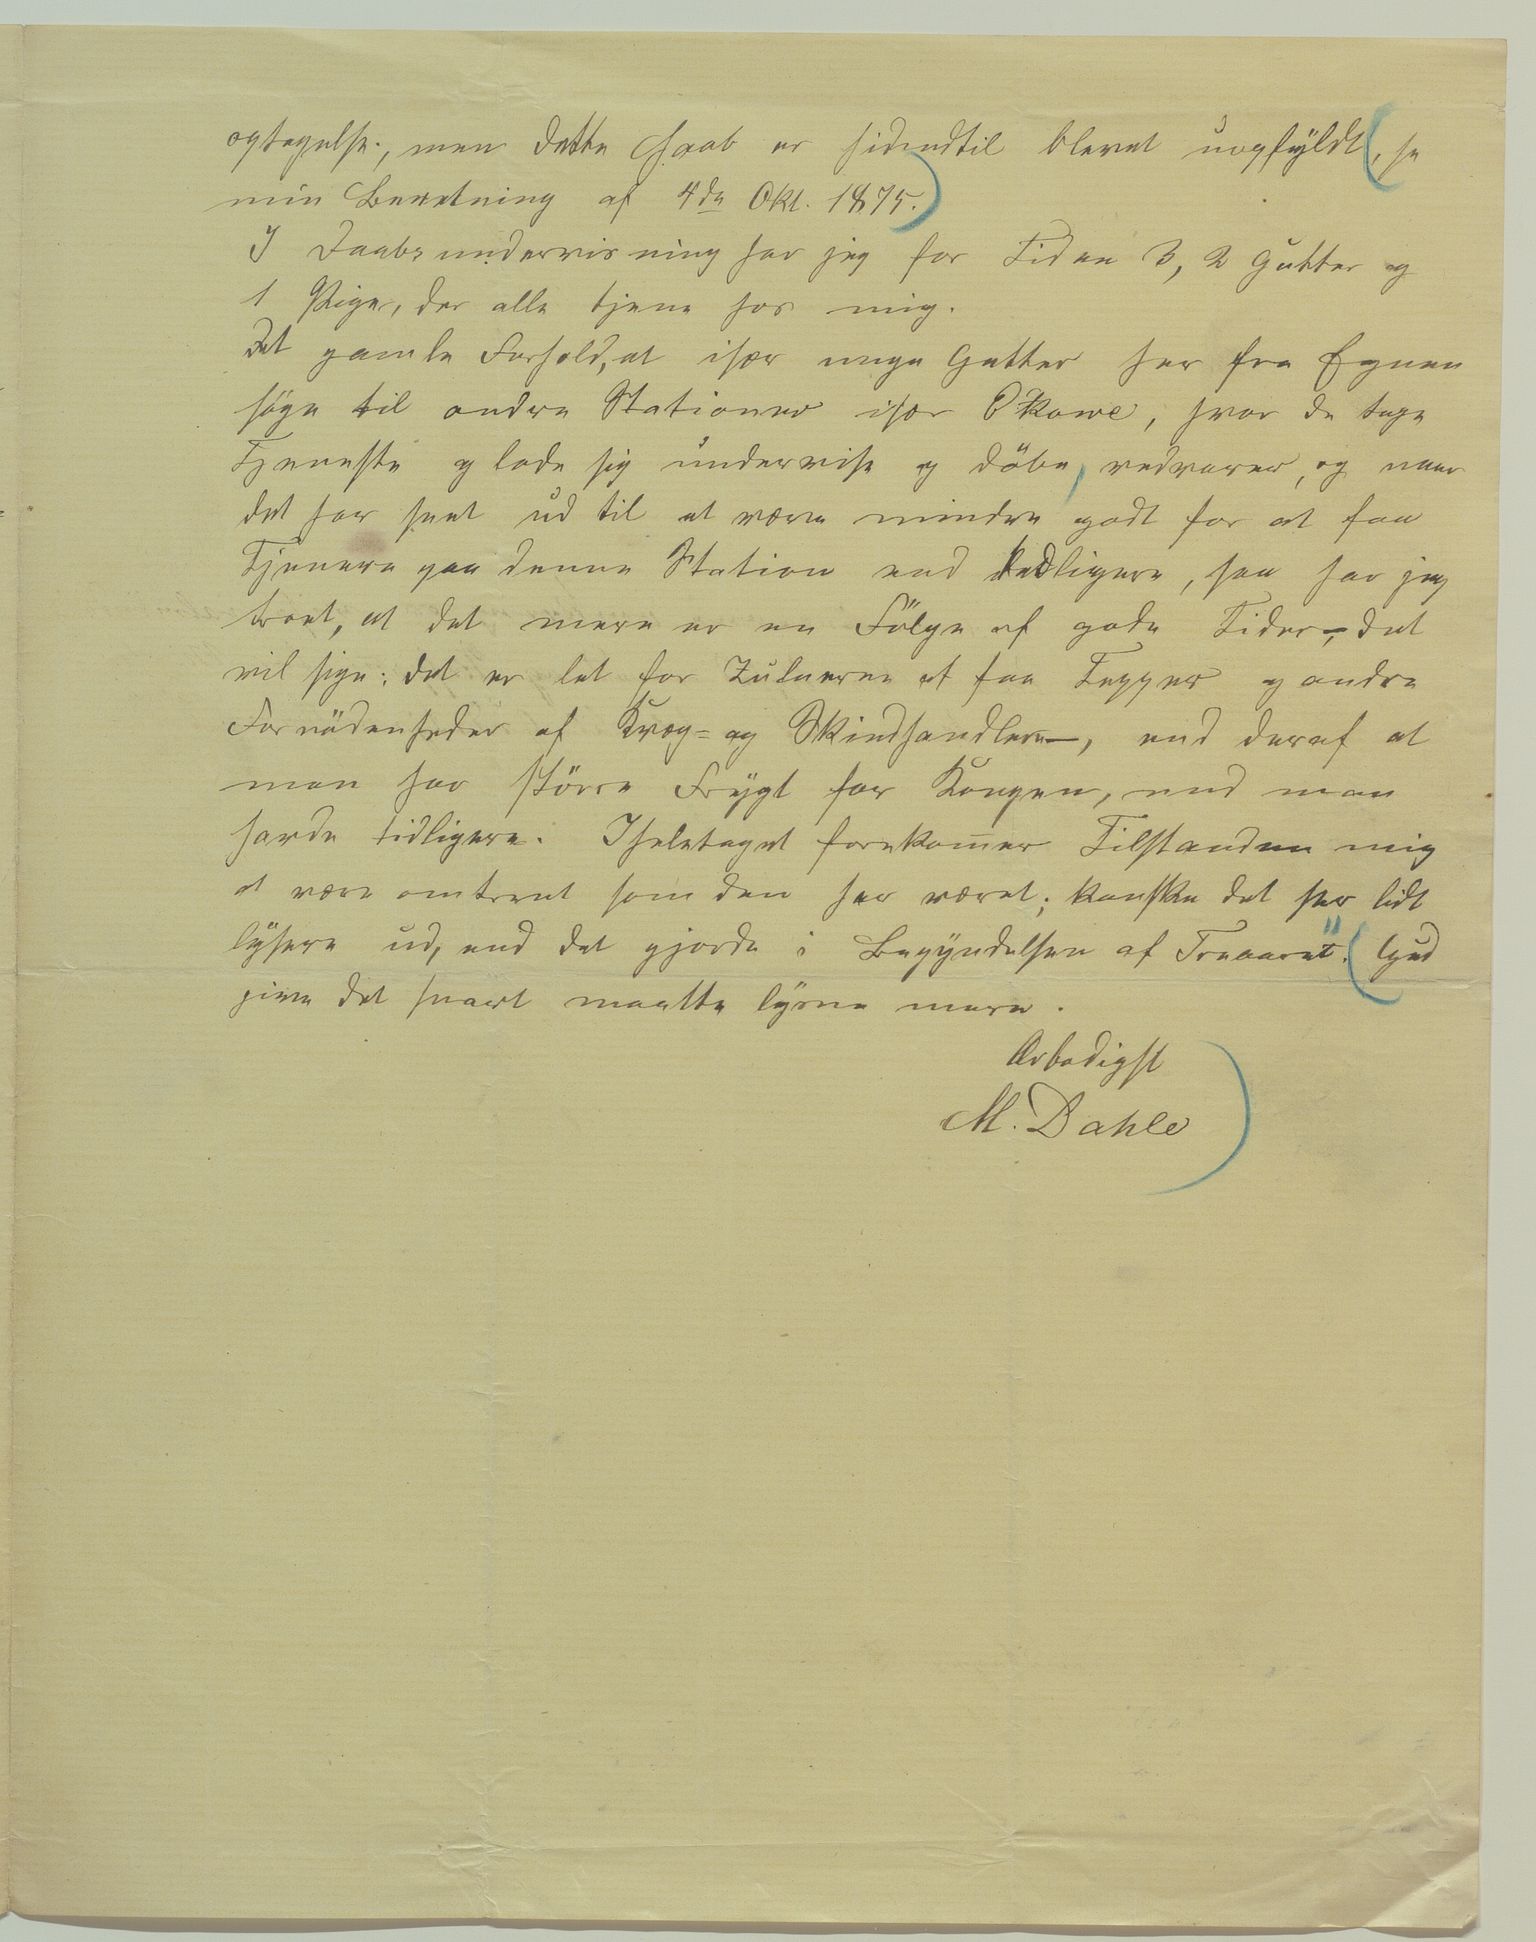 optagelse, men dette Haab er hidindtil blevet uopfyldt, se
min Beretning af 4de Okt. 1875.
I Daabsundervisning har jeg for Tiden 3, 2 Gutter og
1 Pige, der alle tjene hos mig.
Det gamle Forhold, at især unge Gutter her fra Egnen
söge til andre Stationer især Ekowe, hvor de tage
Tjeneste og lade sig undervise og döbe, vedvarer, og naar
det har seet ud til at være mindre godt for at faa
Tjenere paa denne Station end tidligere, saa har jeg
troet, at det mere er en Fölge af gode Tider, det
vil sige: det er let for Zuluerne at faa Tepper og andre
Fornödenheder af Kvæg= og Skindhandlere, end deraf at
man har större Frygt for Kongen, end man
havde tidligere. I heletaget forekommer Tilstanden mig
at være omtrent som den har været; kanske det ser lidt
lysere ud, end det gjorde i Begyndelsen af Treaaret". Gud
give det snart maatte lysne mere.
Ærbødigst
M. Dahle